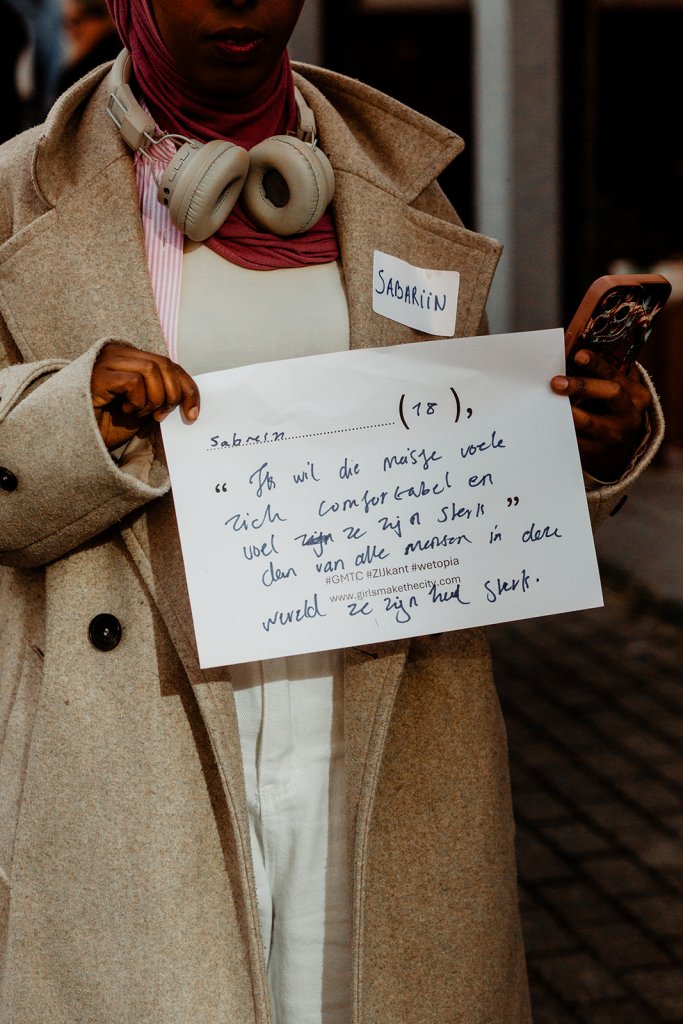 SABARIIN
Sabrein (18),
“ Ik wil die meisje voele
zich comfortabel en
voel ze zijn sterk ”
dan van alle mensen in deze
#GMTC #ZIJkant #wetopia
www.girlsmakethecity.com
wereld ze zijn heel sterk.